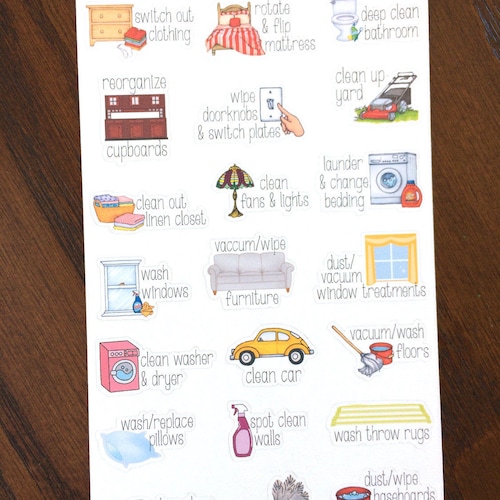 switch out
clothing
rotate
& flip
mattress
deep clean
bathroom
reorganize
cupboards
wipe
doorknobs
& switch plates
clean up
yard
clean out
linen closet
clean
fans & lights
launder
& change
bedding
wash
windows
vaccum/wipe
furniture
dust/
vacuum
window treatments
clean washer
& dryer
clean car
vacuum/wash
floors
wash/replace
pillows
spot clean
walls
wash throw rugs
dust/wipe
baseboards